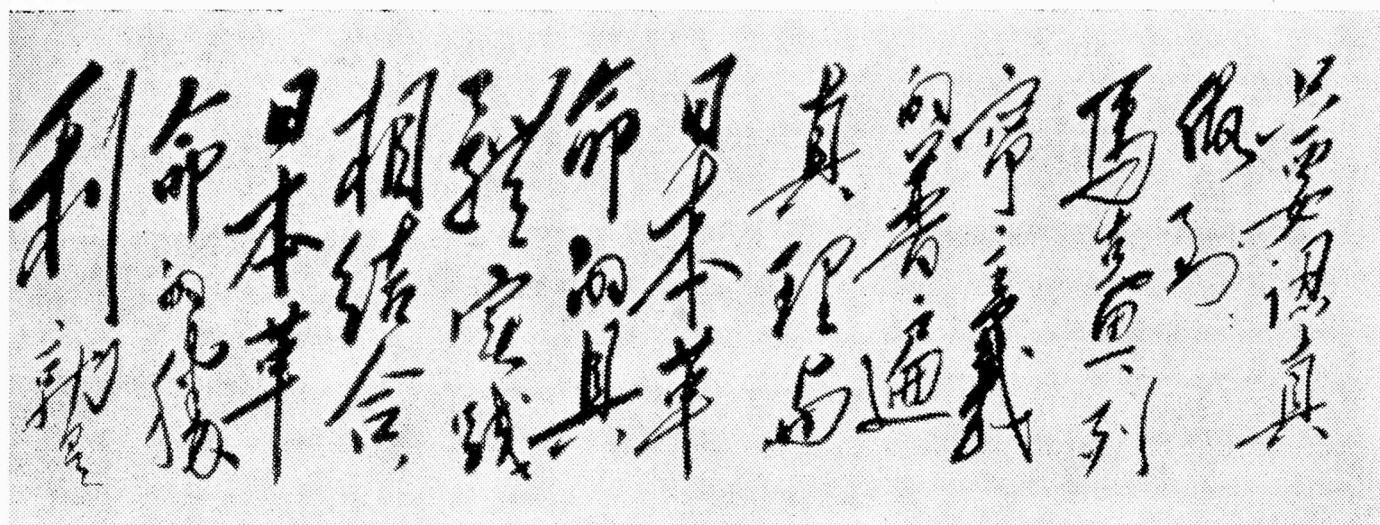 只要認真
做到
馬克思列
寧主義
的普遍
真理与
日本革
命的具
體实践
相結合
日本革
命的勝
利就是